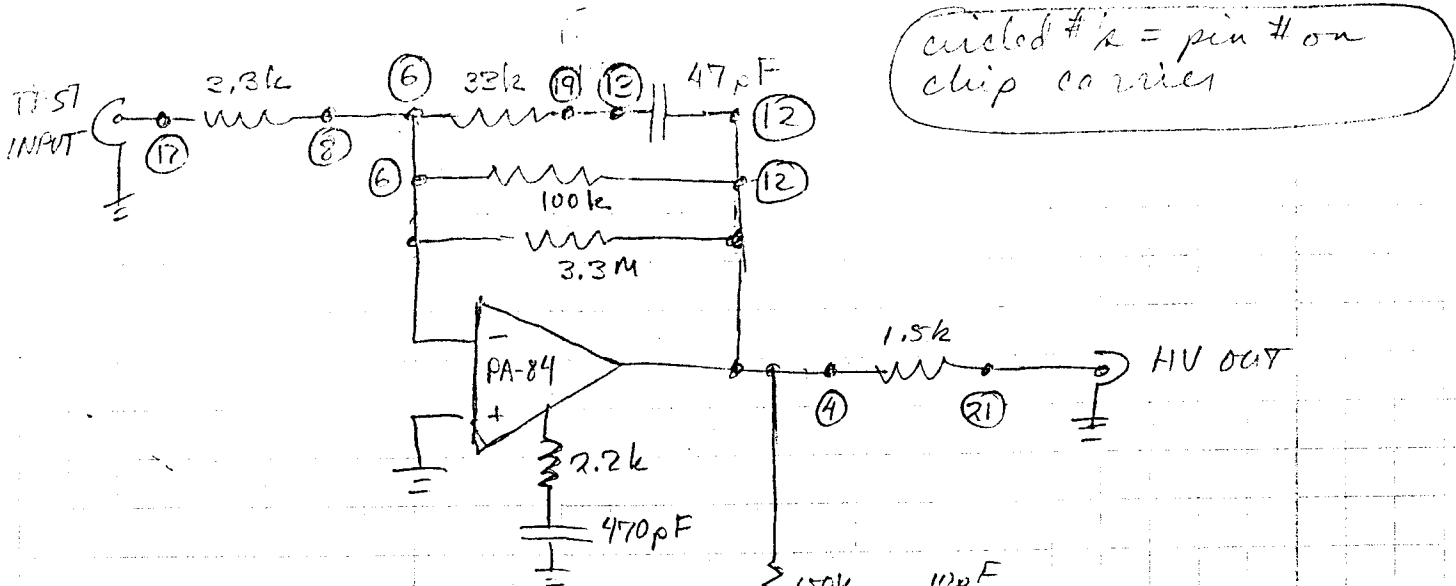 circled #'s = pin # on
chip carrier
TEST
INPUT
3.3k
6
33k
19
13
47pF
12
17
8
6
100k
12
3.3M
-
PA-84
+
1.5k
HV OUT
4
21
2.2k
470pF
100k
10pF